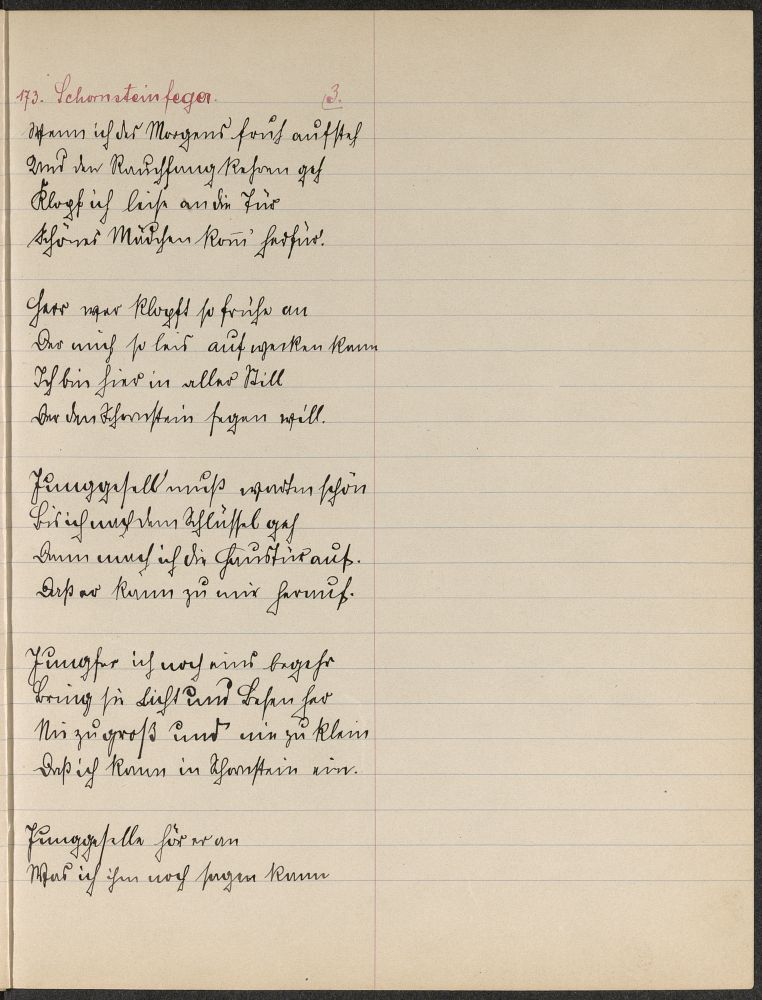 173. Schornsteinfeger. 3.
Wenn ich des Morgens früh aufsteh
Und den Rauchfang kehren geh
Klopf ich leise an die Tür
Schönes Mädchen kom̄ herfür.
Herr wer klopft so frühe an
Der mich so leis aufwecken kann
Ich bin hier in aller Still
Der den Schornstein fegen will.
Junggesell muß warten schön
Bis ich nach dem Schlüssel geh
Dann mach ich die Haustür auf.
Daß er kann zu mir herauf.
Jungfer ich noch eins begehr
Bring sie Licht und Besen her
Nie zu groß und nie zu klein
Daß ich kann in Schornstein ein.
Junggeselle hör er an
Was ich ihm noch sagen kann